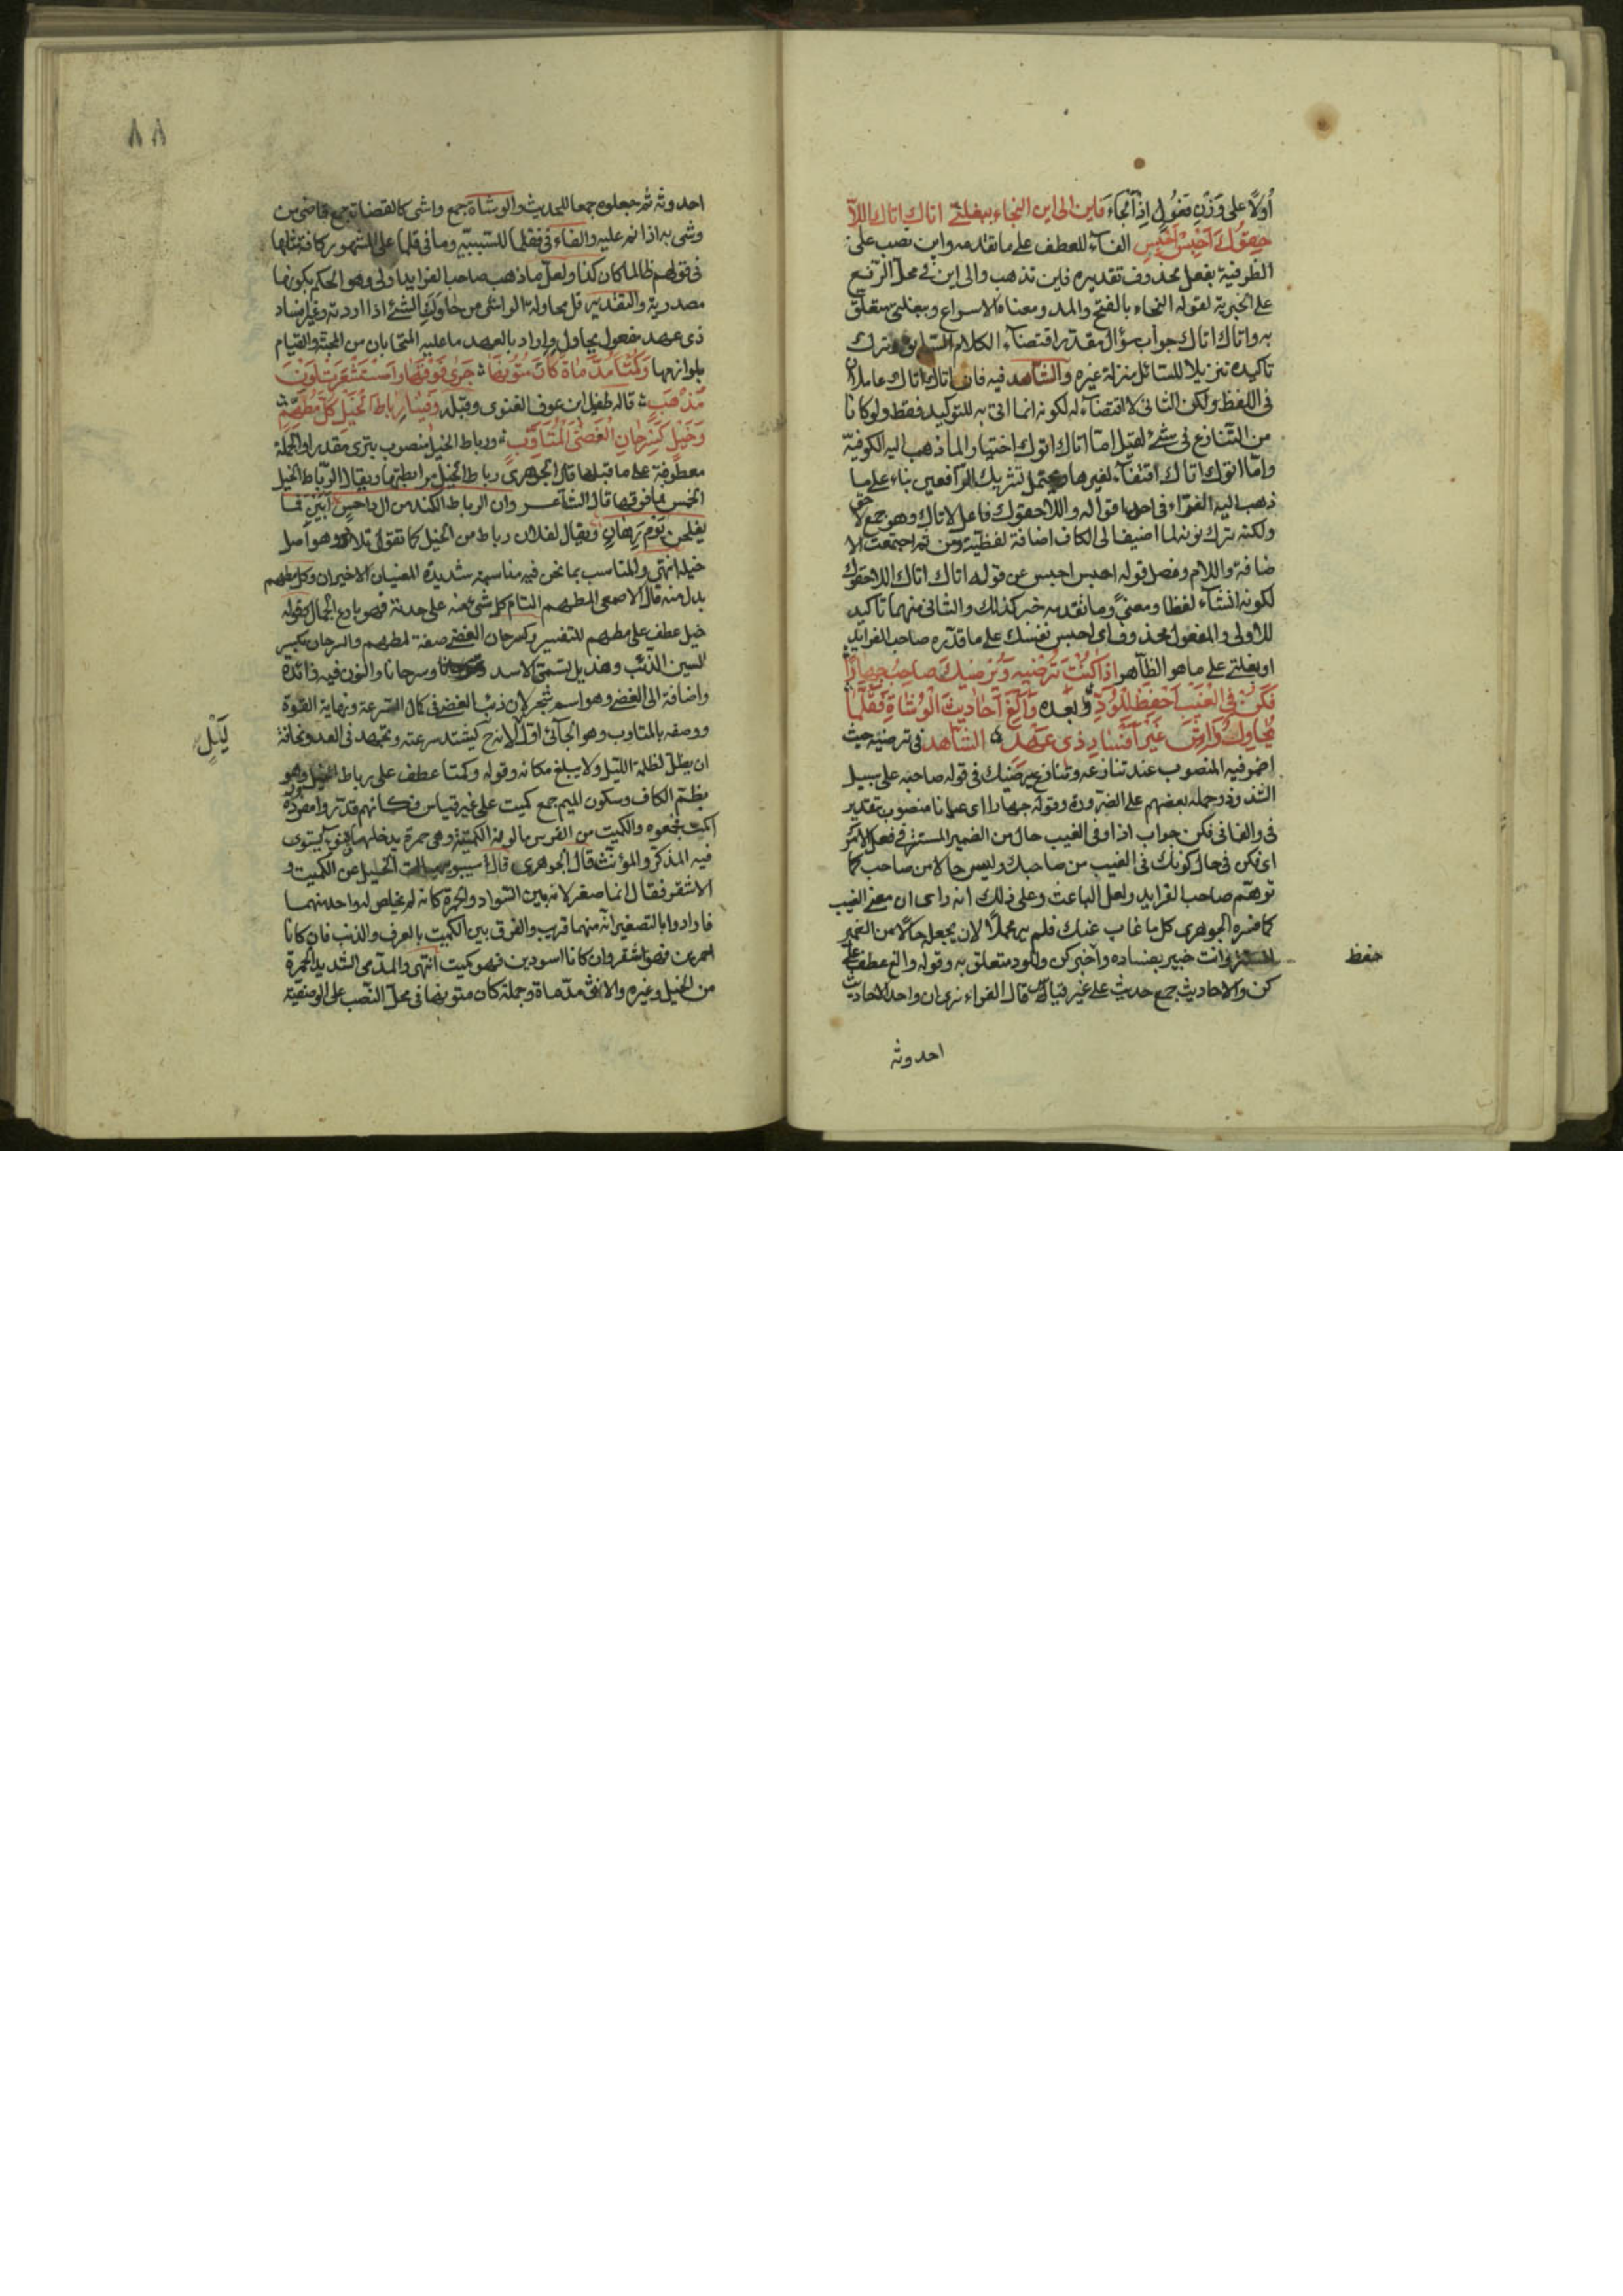 اولا على وزن تقول اذا نجاء فاين الى اين النجاء ببغلتى اتاك اتاك اللا
حقوك احبس احبس الفاء للعطف على ما تقدمه واين نصب على
الظرفية بفعل محذوف تقديره فاين تذهب والى اين فى محل الرفع
على الخبرية لقوله النجاء بالفتح والمد ومعناه الاسراع وببغلتى متعلق
به واتاك اتاك جواب سؤال مقدر اقتضاء الكلام السابق وترك
تاكيده تنزيلا للسائل منزلة غيره والشاهد فيه فان اتاك اتاك عاملان
فى اللفظ ولكن الثانى لا اقتضاء له لكونه انما اتى به للتوكيد فقط ولو كانا
من التنازع فى شئ لقيل اما اتاك اتوك اختيار الما ذهب اليه الكوفية
واما اتوك اتاك لغيرها ويحتمل تشريك الرافعين بناء على ما
ذهب اليه الفراء فى احد اقواله واللاحقوك فاعل لاتاك وهو جمع لاحق
ولكنه ترك نونه لما اضيف الى الكاف اضافة لفظية ومن ثم اجتمعت الا
ضافة واللام وفصل قوله احبس احبس عن قوله اتاك اتاك اللاحقوك
لكونه انشاء لفظا ومعنى وما تقدمه خبر كذلك والثانى منهما تاكيد
للاولى والمفعول محذوف اى احبس نفسك على ما قدره صاحب الفرايد
او بغلتى على ما هو الظاهر اذا كنت ترضيه ويرضيك صاحب جهارا
فكن فى الغيب احفظ للود وبعده والغ احاديث الوشاة فقلما
يحاول واش غير افساد ذى عهد الشاهد فى ترضيه حيث
اضمر فيه المنصوب عند تنازعه وتنازع يرضيك فى قوله صاحب على سبيل
الشذوذ وحمله بعضهم على الضرورة وقوله جهارا اى عيانا منصوب بتقدير
فى والفا فى فكن جواب اذا وفى الغيب حال من الضمير المستتر فى فعل الامر
اى فكن فى حال كونك فى الغيب من صاحبك وليس حالا من صاحب كما
توهم صاحب الفرايد ولعل الباعث وعلى ذلك انه راى ان معنى الغيب
كما فسره الجوهرى كل ما غاب عنك فلم ير محملا لان يجعل حالا من الضمير
وانت خبير بفساده واخبر كن وللود متعلق به وقوله والغ عطف على
حفظ
كن والاحاديث جمع حديث على غير قياس قال الفراء نرى ان واحد الاحاديث
احدوثه
٨٨
احدوثه ثم جعلوه جمعا للحديث والوشاة جمع واشى كالقضاة جمع قاضى من
وشى به اذا نم عليه والفاء فى فقلما للسببيه وما فى قلما على المشهور كافة مثلها
فى قولهم طالما كان كذا ولعل ما ذهب صاحب الفرايد اولى وهو الحكم بكونها
مصدرية والتقدير قل محاولة الواشى من حاولت الشئ اذا اردته وغير افساد
ذى عهد مفعول يحاول واراد بالعهد ما عليه المتحابان من المحبة والقيام
بلوازمها وكمتا مدماة كان متونها جرى فوقها واستشعرت لون
مذهب قاله طفيل ابن عوف الغنوى وقبله وفينا رباط الخيل كل مطهم
وخيل كسرحان الغضى المتاوب ورباط الخيل منصوب بترى مقدرا والجملة
معطوفة على ما قبلها قال الجوهرى رباط الخيل مرابطتها ويقال الرباط الخيل
الخمس فما فوقها قال الشاعر وان الرباط النكد من ال داحس ابين فما
يفلحن يوم رهان ويقال لفلان رباط من الخيل كما تقول تلاد وهو اصل
خيله انتهى والمناسب بما نحن فيه مناسبة شديدة المعنيان الاخيران وكل مطهم
بدل منه قال الاصمعى المطهم التام كل شئ منه على حدته فهو بارع الجمال وقوله
خيل عطف على مطهم للتفسير وكسرحان الغضى صفة لمطهم والسرحان بكسر
السين الذئب وهذيل تسمى الاسد وسرحانا والنون فيه زائدة
واضافة الى الغضى وهو اسم شجر لان ذئب الغضى فى كمال السرعة ونهاية القوة
ووصفه بالمتاوب وهو الجائى اول الليل لانه ح يشتد سرعته ويجتهد فى العدو مخافة
ليل
ان يظل لظلمة الليل ولا يبلغ مكانه وقوله وكمتا عطف على رباط الخيل وهو
بظم الكاف وسكون الميم جمع كميت على غير قياس فكانهم قدروا مفرده
اكمت فجمعوه والكميت من الفرس ما لونه الكمتة وهى حمرة يدخلها قنوء يستوى
فيه المذكر والمؤنث قال الجوهرى قال سيبويه سالت الخليل عن الكميت و
الاشقر فقال انما صغر لانه بين السواد والحمرة كانه لم يخلص له واحد منهما
فارادوا بالتصغير انه منهما قريب والفرق بين الكميت بالعرف والذنب فان كانا
احمرين فهو اشقر وان كانا اسودين فهو كميت انتهى والمدمى الشديد الحمرة
من الخيل وغيره والانثى مدماة وجملة كان متونها فى محل النصب على الوصفية